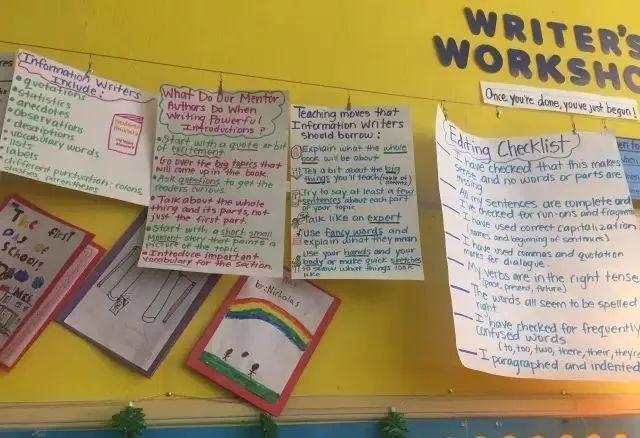 WRITER'S
WORKSHO
Once you're done, you've just begun!
Information Writers
Include:
• quotations
• statistics
• anecdotes
• observations
• descriptions
• vocabulary words
• lists
• labels
• different punctuation: colons,
dashes, parentheses
What Do Our Mentor
Authors Do When
Writing Powerful
Introductions?
• Start with a quote or bit
of excitement.
• Go over the big topics that
will come up in the book.
• Ask questions to get the
readers curious.
• Talk about the whole
thing and its parts, not
just the first part.
• Start with a short small
moment story that paints a
picture of the topic
• Introduce important
vocabulary for the section.
Teaching moves that
Information Writers
Should borrow:
Explain what the whole
book will be about
Tell a bit about the big
things you'll teach (table of
contents)
Try to say at least a few
sentences about each part
of your topic
Talk like an expert
Use fancy words and
explain what they mean
Use your hands and your
body or make quick sketches
to show what things look
like
Editing Checklist
I have checked that this makes
sense and no words or parts are
missing
All my sentences are complete and
I've checked for run-ons and fragme
I have used correct capitalization
(names and beginning of sentences)
I have used commas and quotation
marks for dialogue.
My verbs are in the right tense
(past, present, future)
The words all seem to be spelled
right
I have checked for frequently
confused words
(to, too, two, there, their, they're
I paragraphed and indented
The first
Day of
School
by: Nicholas